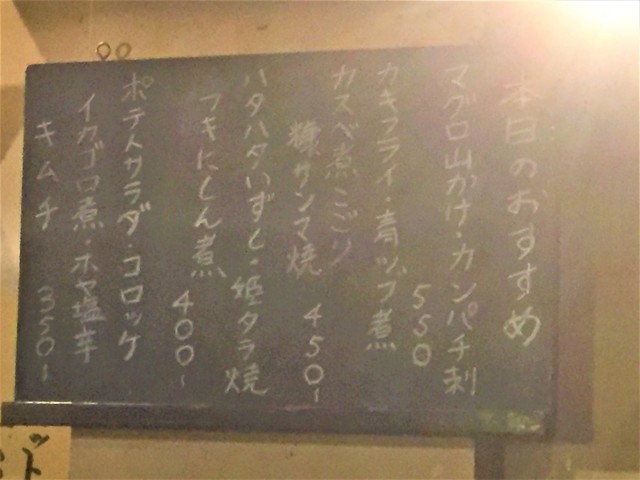 本日のおすすめ
マグロ山かけ・カンパチ刺
550
カキフライ・青ツブ煮
カスベ煮こごり
糠サンマ焼
450-
ハタハタいずし・姫タラ焼
フキにしん煮
400-
ポテトサラダ・コロッケ
イカゴロ煮・ホヤ塩辛
キムチ 350-
ッド